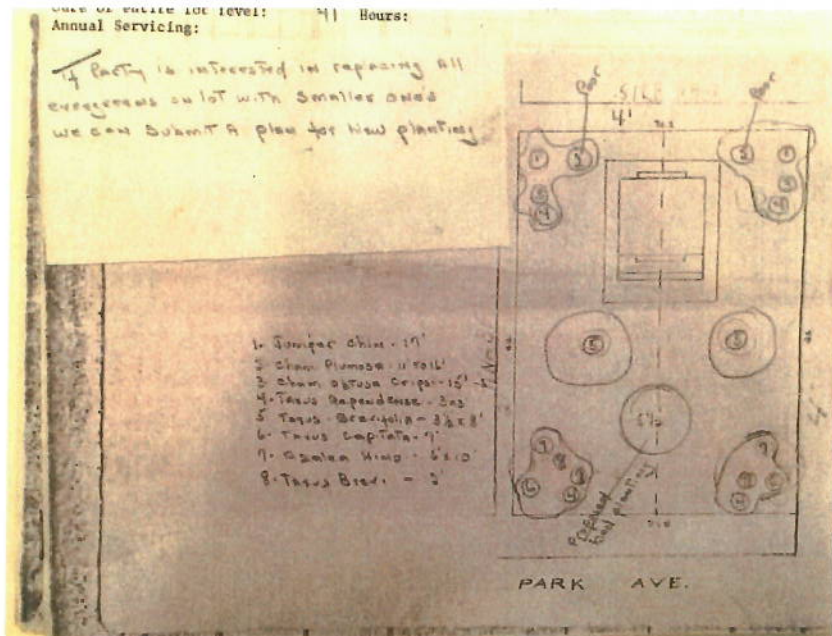 Care of entire lot level: 41 Hours:
Annual Servicing:
If Party is interested in repacing All
evergreens on lot with smaller ones
we can Submit A plan for New planting
4'
1- Juniper Chin - 17'
2 Cham Plumosa - 11' to 16'
3. Cham obtusa Cripsi - 15'
4. Taxus Repandense - 3x3
5 Taxus - Brevifolia - 3½ x 8'
6. Taxus Capitata - 7'
7. Azalea Hino - 5'x10'
8. Taxus Brevi - 3'
1 3 2 1
5 5
Proposed
bed planting
7 7
8
6
PARK AVE.